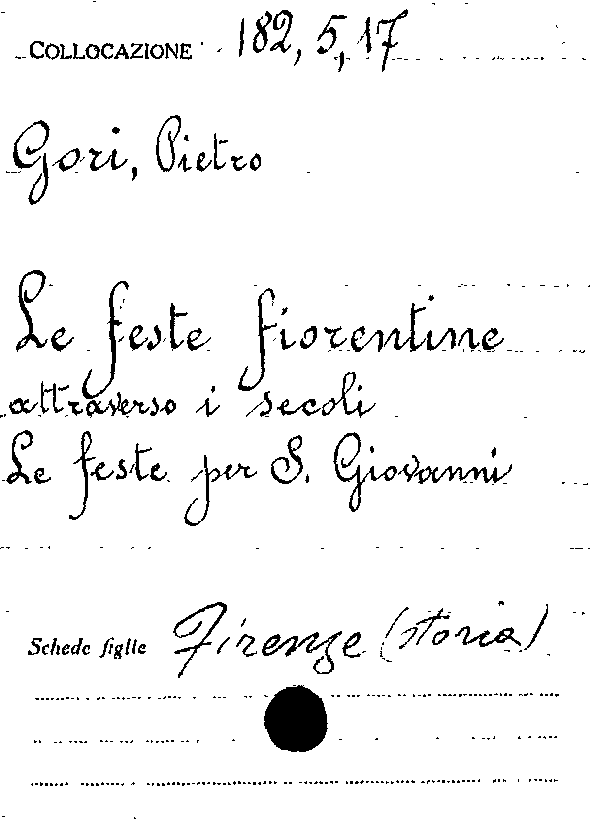 COLLOCAZIONE 182, 5, 17
Gori, Pietro
Le feste fiorentine
attraverso i secoli
Le feste per S. Giovanni
Schede figlie Firenze (storia)